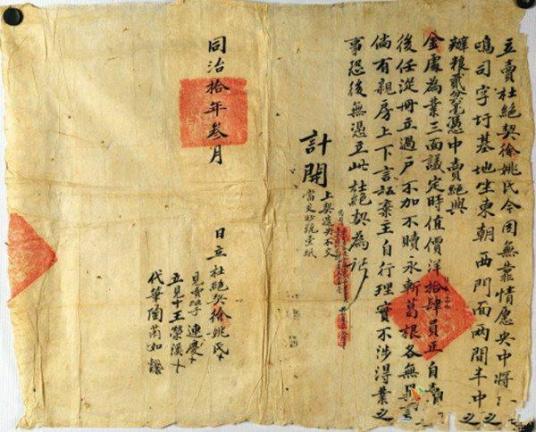 立賣杜絕契徐姚氏今因無靠情愿央中將
鳴司字圩基地坐東朝西門面兩間半中
辦粮貳分憑中賣絕與
金處為業三面議定時值價洋拾肆員正自賣之
後任從册立過户不加不贖永斬葛根各無異言
倘有親房上下言論棄主自行理實不涉得業之
事恐後無憑立此杜絕契為
計開
上契過央不文
當交
壹紙
同治拾年叁月
日立杜絕契徐姚氏十
見賣姪子連慶十
立見十王榮漢十
代筆如